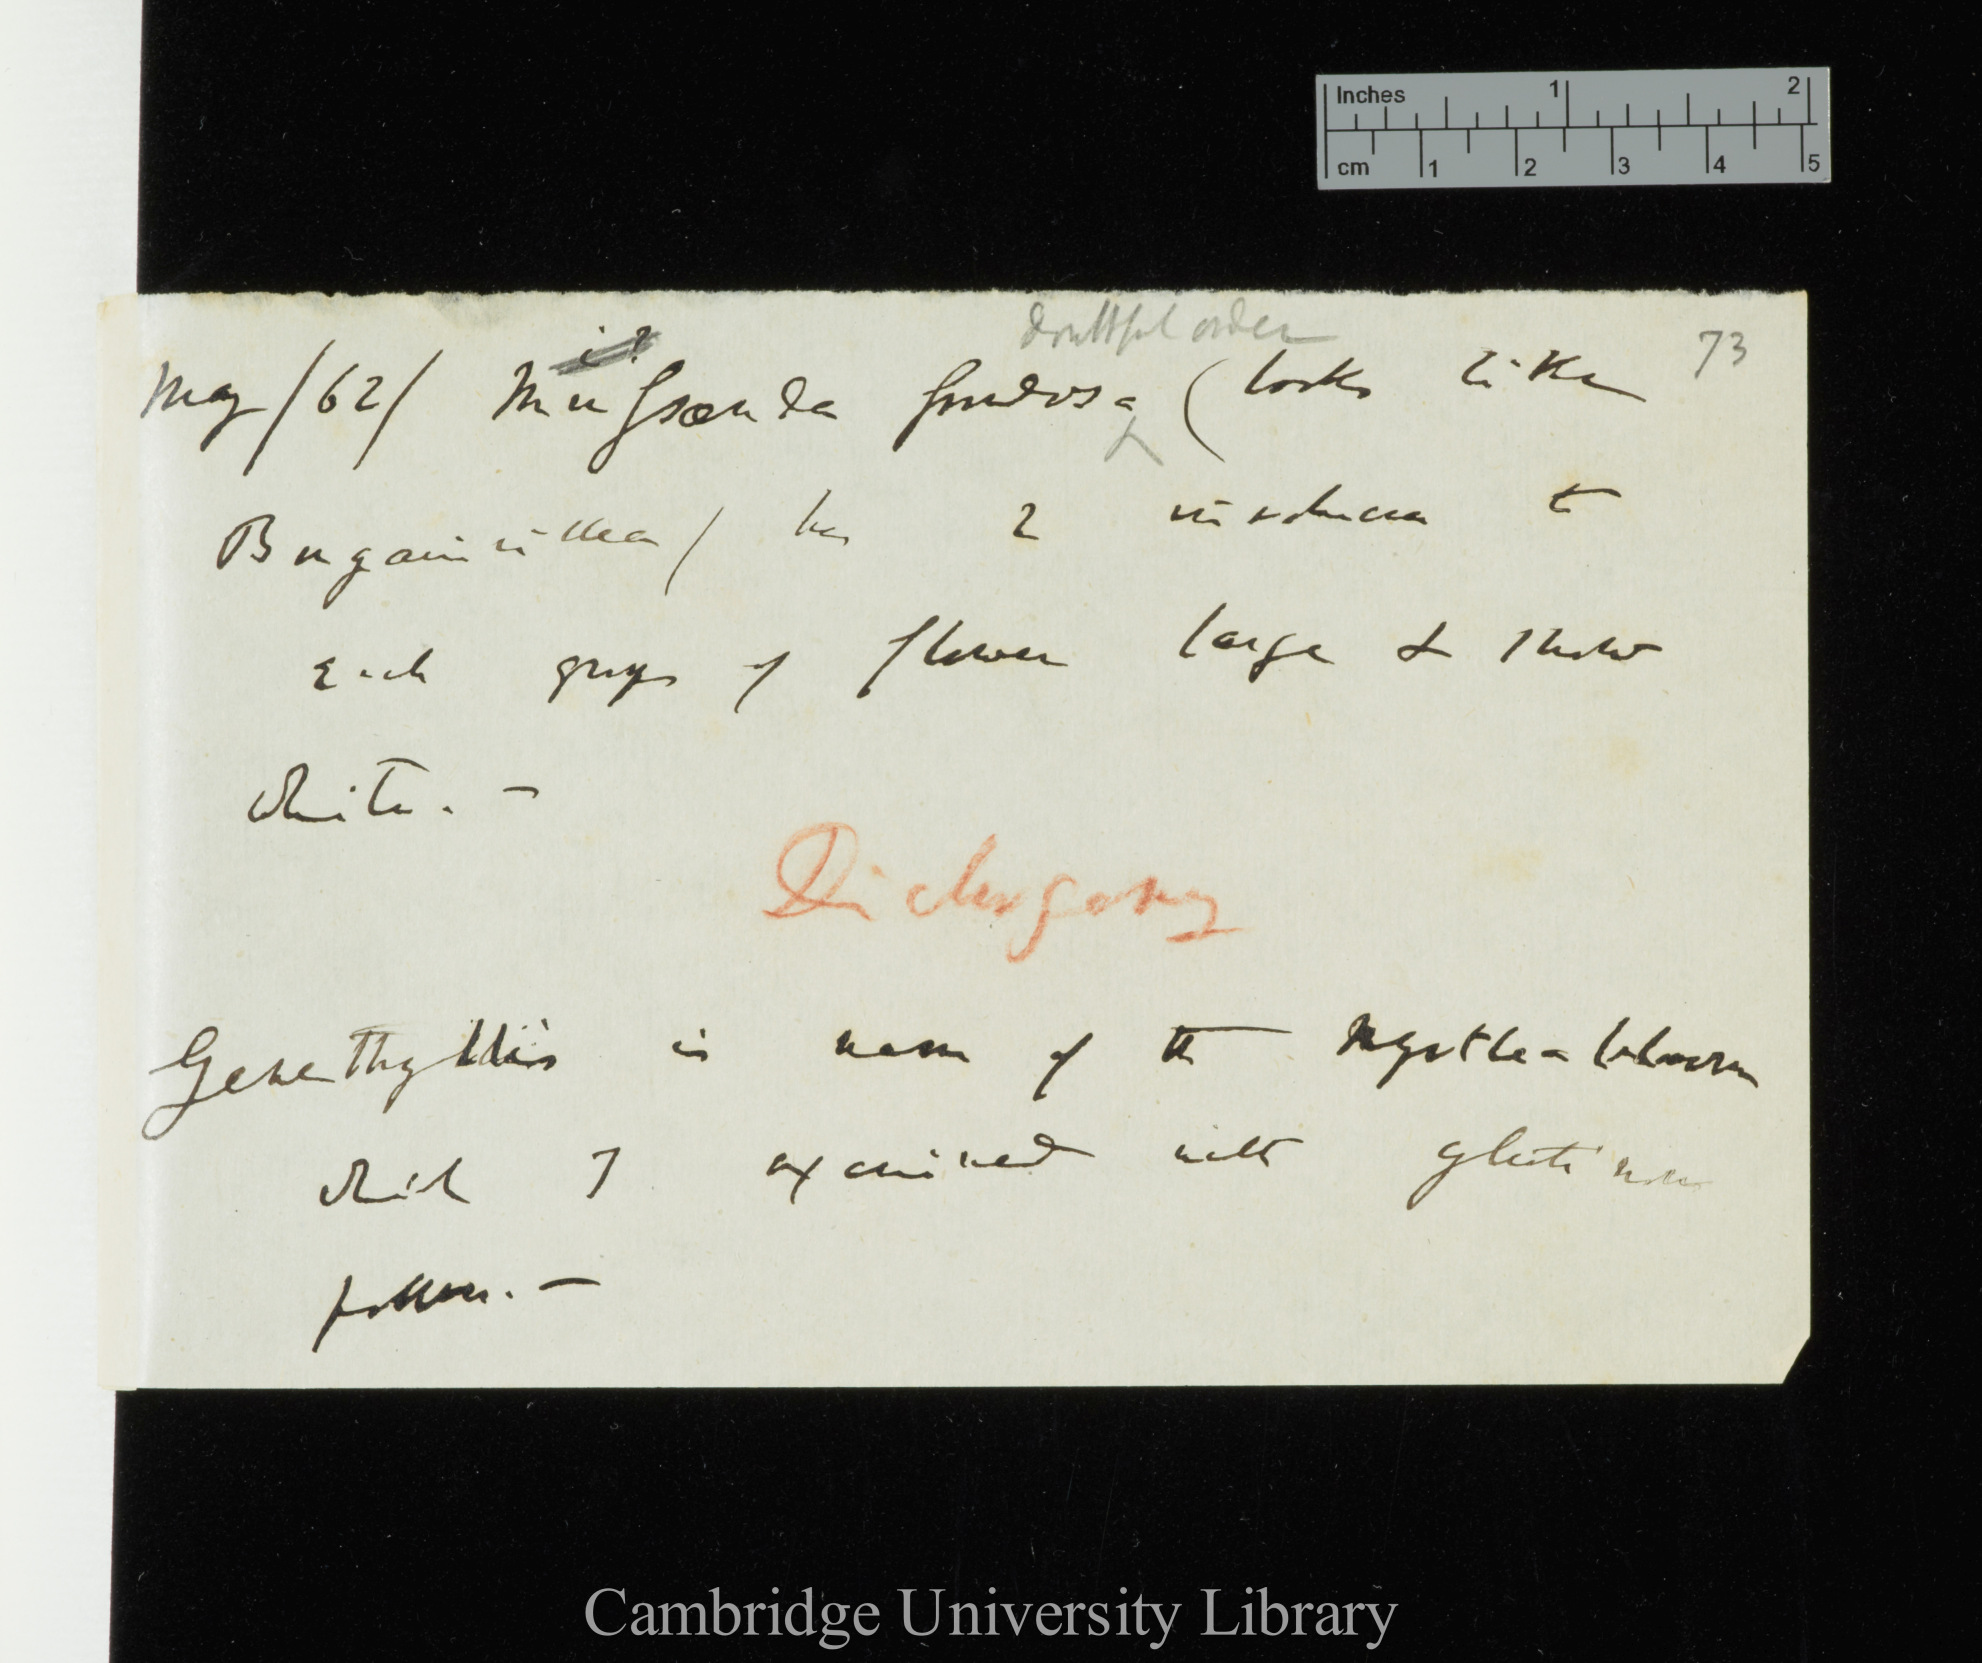 Inches 1 2
cm 1 2 3 4 5
73
doubtful order
May/62/ Mussænda frondosa (looks like
Bugainvillea) has 2 involucra to
each group of flower large & snow
white. —
Dichogamy
Genethyllis is name of the Myrtle-bloom
which I examined with glutinous
pollen. —
Cambridge University Library